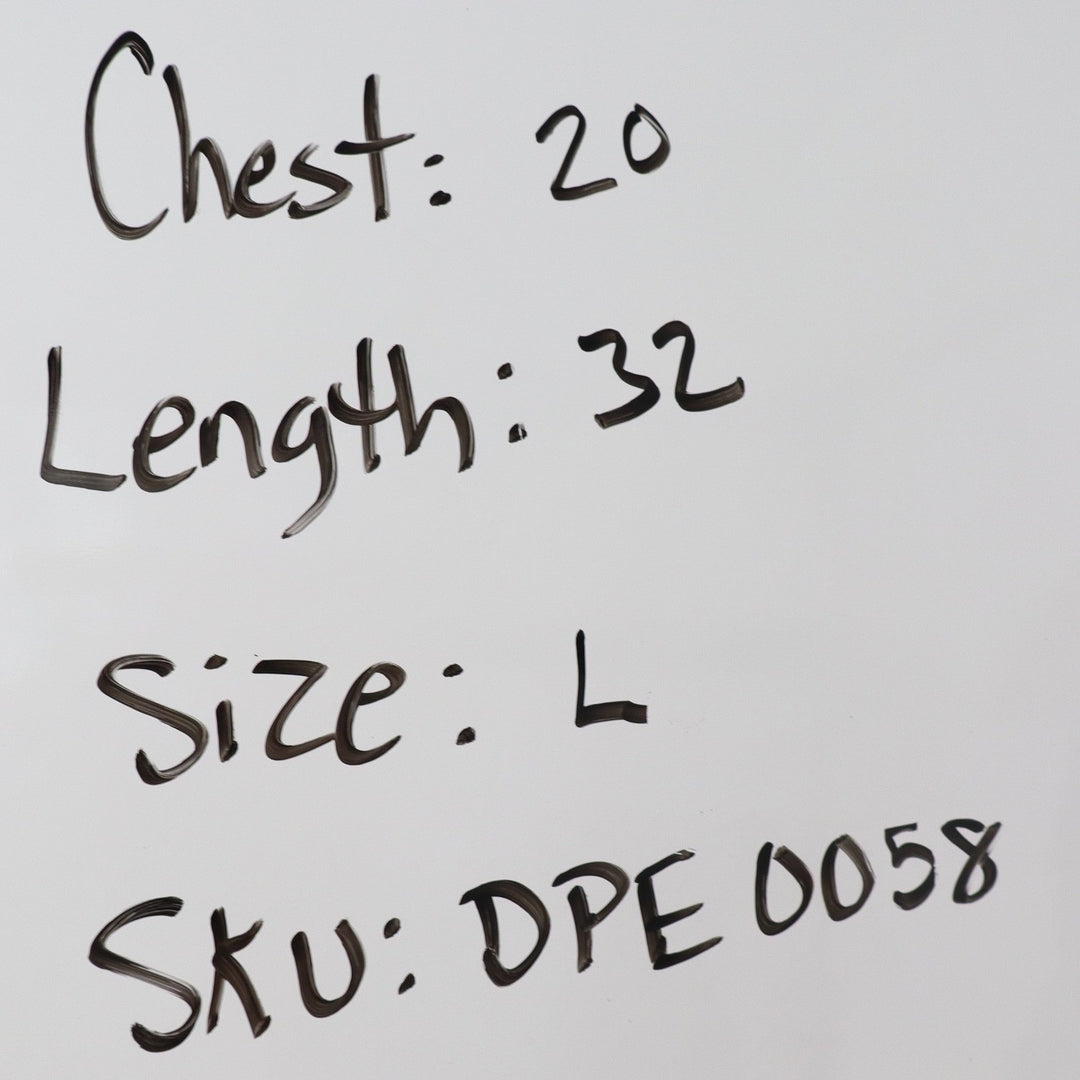 Chest: 20
Length: 32
Size: L
Sku: DPE 0058